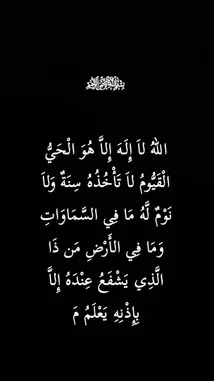 ﷽
اللهُ لاَ إِلَهَ إِلاَّ هُوَ الْحَيُّ
الْقَيُّومُ لاَ تَأْخُذُهُ سِنَةٌ وَلاَ
نَوْمٌ لَّهُ مَا فِي السَّمَاوَاتِ
وَمَا فِي الأَرْضِ مَن ذَا
الَّذِي يَشْفَعُ عِنْدَهُ إِلاَّ
بِإِذْنِهِ يَعْلَمُ مَ